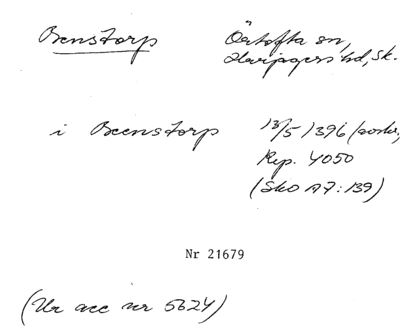 Benstorp Örtofta sn,
Harjagers hd, Sk.
i Beenstorp 13/5 1396 (avskr,
Rep. 4050
(Sko A7: 139)
Nr 21679
(Ur acc nr 5624)